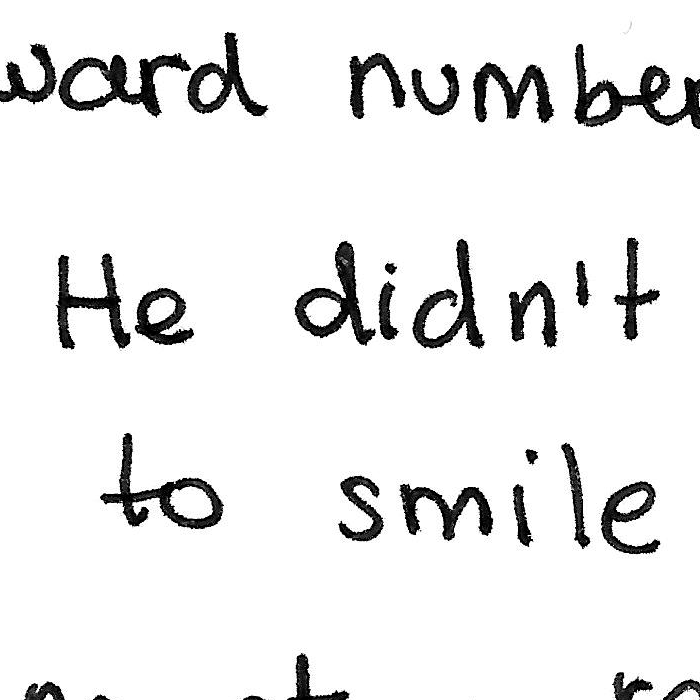 ward number
He didn't
to smile